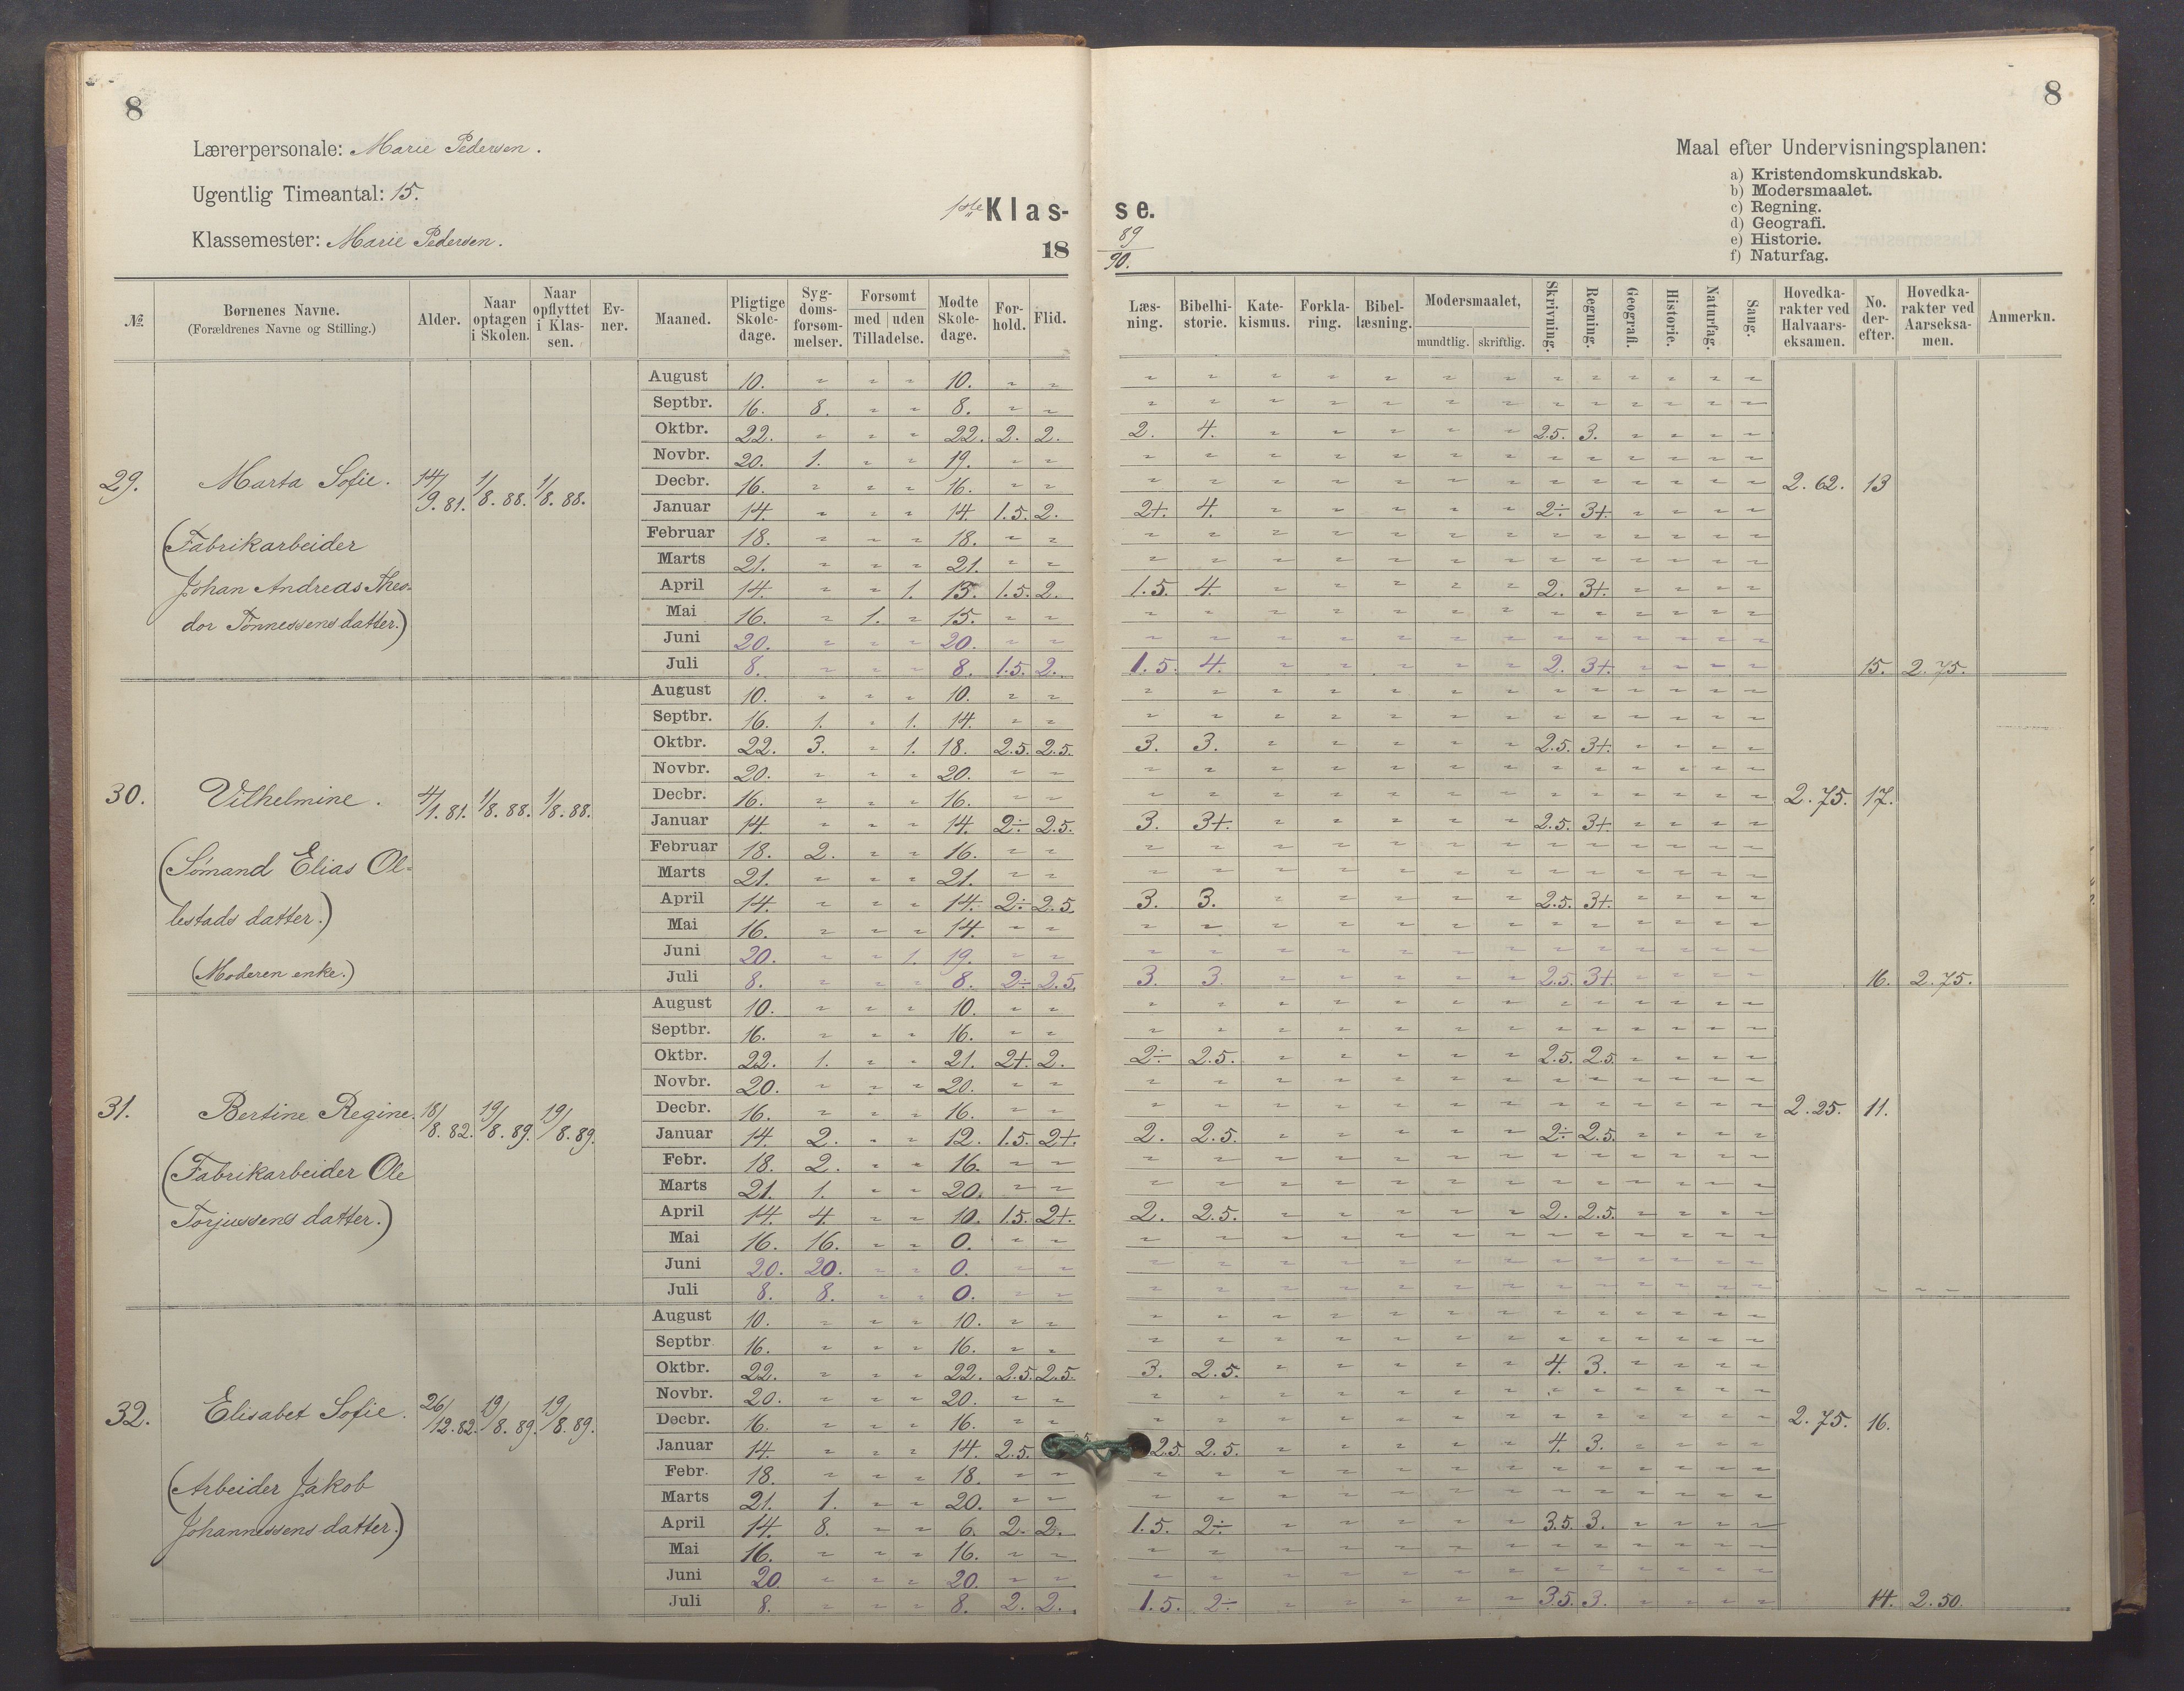 8
8
Lærerpersonale: Marie Pedersen.
Ugentlig Timeantal: 15.
Klassemester: Marie Pedersen.
1ste Klas- se.
18 89/90.
Maal efter Undervisningsplanen:
a) Kristendomskundskab.
b) Modersmaalet.
c) Regning.
d) Geografi.
e) Historie.
f) Naturfag.
№ | Børnenes Navne. (Forældrenes Navne og Stilling.) | Alder. | Naar optagen i Skolen. | Naar opflyttet i Klassen. | Evner. | Maaned. | Pligtige Skoledage. | Sygdomsforsømmelser. | Forsømt med uden Tilladelse. | Mødte Skoledage. | Forhold. | Flid. | Læsning. | Bibelhistorie. | Katekismus. | Forklaring. | Bibellæsning. | Modersmaalet, mundtlig. skriftlig. | Skrivning. | Regning. | Geografi. | Historie. | Naturfag. | Sang. | Hovedkarakter ved Halvaarseksamen. | No. derefter. | Hovedkarakter ved Aarseksamen. | Anmerkn.
29. Marta Sofie. 14/9.81. 1/8.88. 1/8.88.
(Fabrikarbeider
Johan Andreas Theo-
dor Tønnessens datter.)
August 10. 10.
Septbr. 16. 8. 8.
Oktbr. 22. 22. 2. 2. 2. 4. 2.5. 3.
Novbr. 20. 1. 19.
Decbr. 16. 16. 2.62. 13
Januar 14. 14. 1.5. 2. 2+. 4. 2÷ 3+.
Februar 18. 18.
Marts 21. 21.
April 14. 1. 13. 1.5. 2. 1.5. 4. 2. 3+.
Mai 16. 1. 15.
Juni 20. 20.
Juli 8. 8. 1.5. 2. 1.5. 4. 2. 3+. 15. 2.75.
30. Vilhelmine. 4/1.81. 1/8.88. 1/8.88.
(Sømand Elias Ol-
lestads datter.)
(Moderen enke.)
August 10. 10.
Septbr. 16. 1. 1. 14.
Oktbr. 22. 3. 1. 18. 2.5. 2.5. 3. 3. 2.5. 3+.
Novbr. 20. 20.
Decbr. 16. 16. 2.75. 17.
Januar 14. 14. 2÷ 2.5. 3. 3+. 2.5. 3+.
Februar 18. 2. 16.
Marts 21. 21.
April 14. 14. 2÷ 2.5. 3. 3. 2.5. 3+.
Mai 16. 14.
Juni 20. 1. 19.
Juli 8. 8. 2÷ 2.5. 3. 3. 2.5. 3+. 16. 2.75.
31. Bertine Regine. 18/8.82. 19/8.89. 19/8.89.
(Fabrikarbeider Ole
Torjussens datter.)
August 10. 10.
Septbr. 16. 16.
Oktbr. 22. 1. 21. 2+. 2. 2÷ 2.5. 2.5. 2.5.
Novbr. 20. 20.
Decbr. 16. 16. 2.25. 11.
Januar 14. 2. 12. 1.5. 2+. 2. 2.5. 2÷ 2.5.
Febr. 18. 2. 16.
Marts 21. 1. 20.
April 14. 4. 10. 1.5. 2+. 2. 2.5. 2. 2.5.
Mai 16. 16. 0.
Juni 20. 20. 0.
Juli 8. 8. 0.
32. Elisabet Sofie. 26/12.82. 19/8.89. 19/8.89.
(Arbeider Jakob
Johannessens datter.)
August 10. 10.
Septbr 16. 16.
Oktbr. 22. 22. 2.5. 2.5. 3. 2.5. 4. 3.
Novbr. 20. 20.
Decbr. 16. 16. 2.75. 16.
Januar 14. 14. 2.5. 2.5. 2.5. 4. 3.
Febr. 18. 18.
Marts 21. 1. 20.
April 14. 8. 6. 2. 2. 1.5. 2÷ 3.5. 3.
Mai 16. 16.
Juni 20 20.
Juli 8. 8. 2. 2. 1.5. 2÷ 3.5. 3. 14. 2.50.